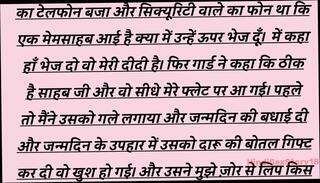 का टेलफोन बजा और सिक्यूरिटी वाले का फोन था कि
एक मेमसाहब आई है क्या में उन्हें ऊपर भेज दूँ। में कहा
हाँ भेज दो वो मेरी दीदी है। फिर गार्ड ने कहा कि ठीक
है साहब जी और वो सीधे मेरे फ्लेट पर आ गई। पहले
तो मैंने उसको गले लगाया और जन्मदिन की बधाई दी
और जन्मदिन के उपहार में उसको दारू की बोतल गिफ्ट
कर दी वो खुश हो गई। और उसने मुझे ज़ोर से लिप किस